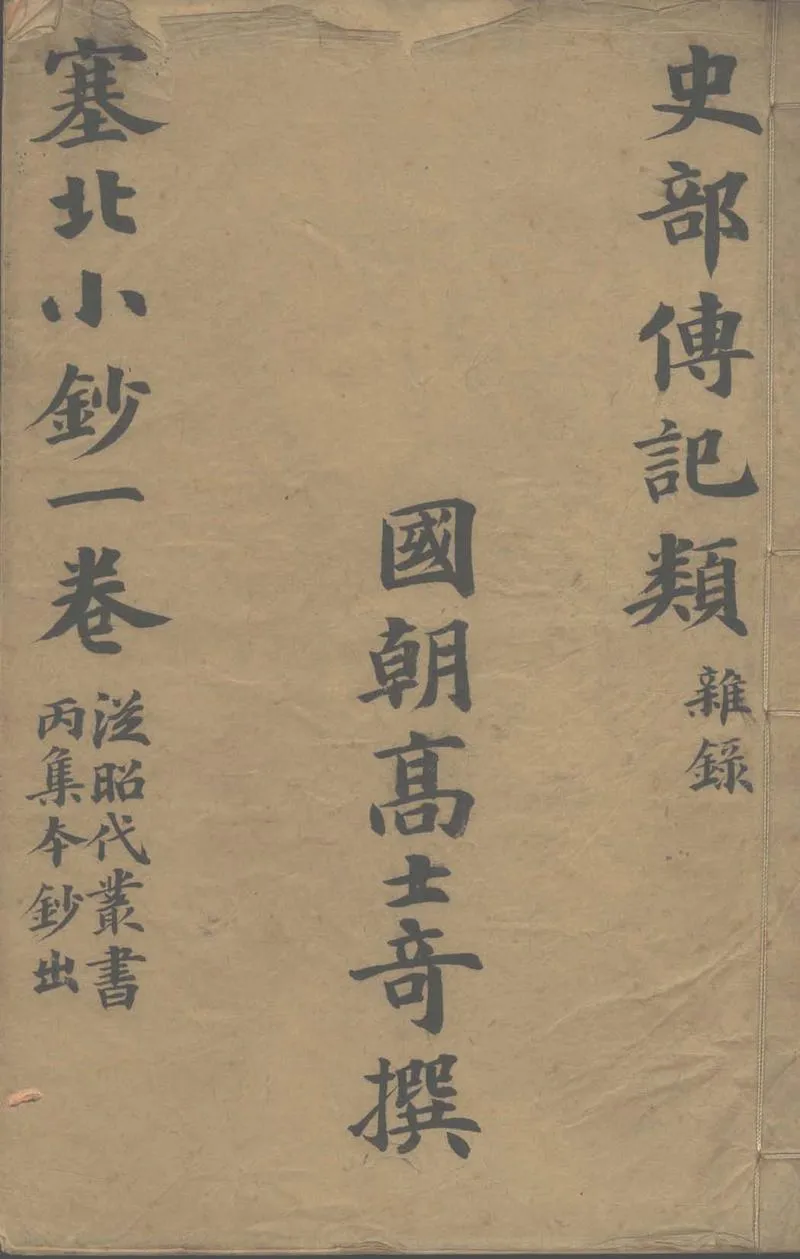 史部傳記類
雜錄
國朝高士奇撰
塞北小鈔一卷
從昭代叢書
丙集本鈔出